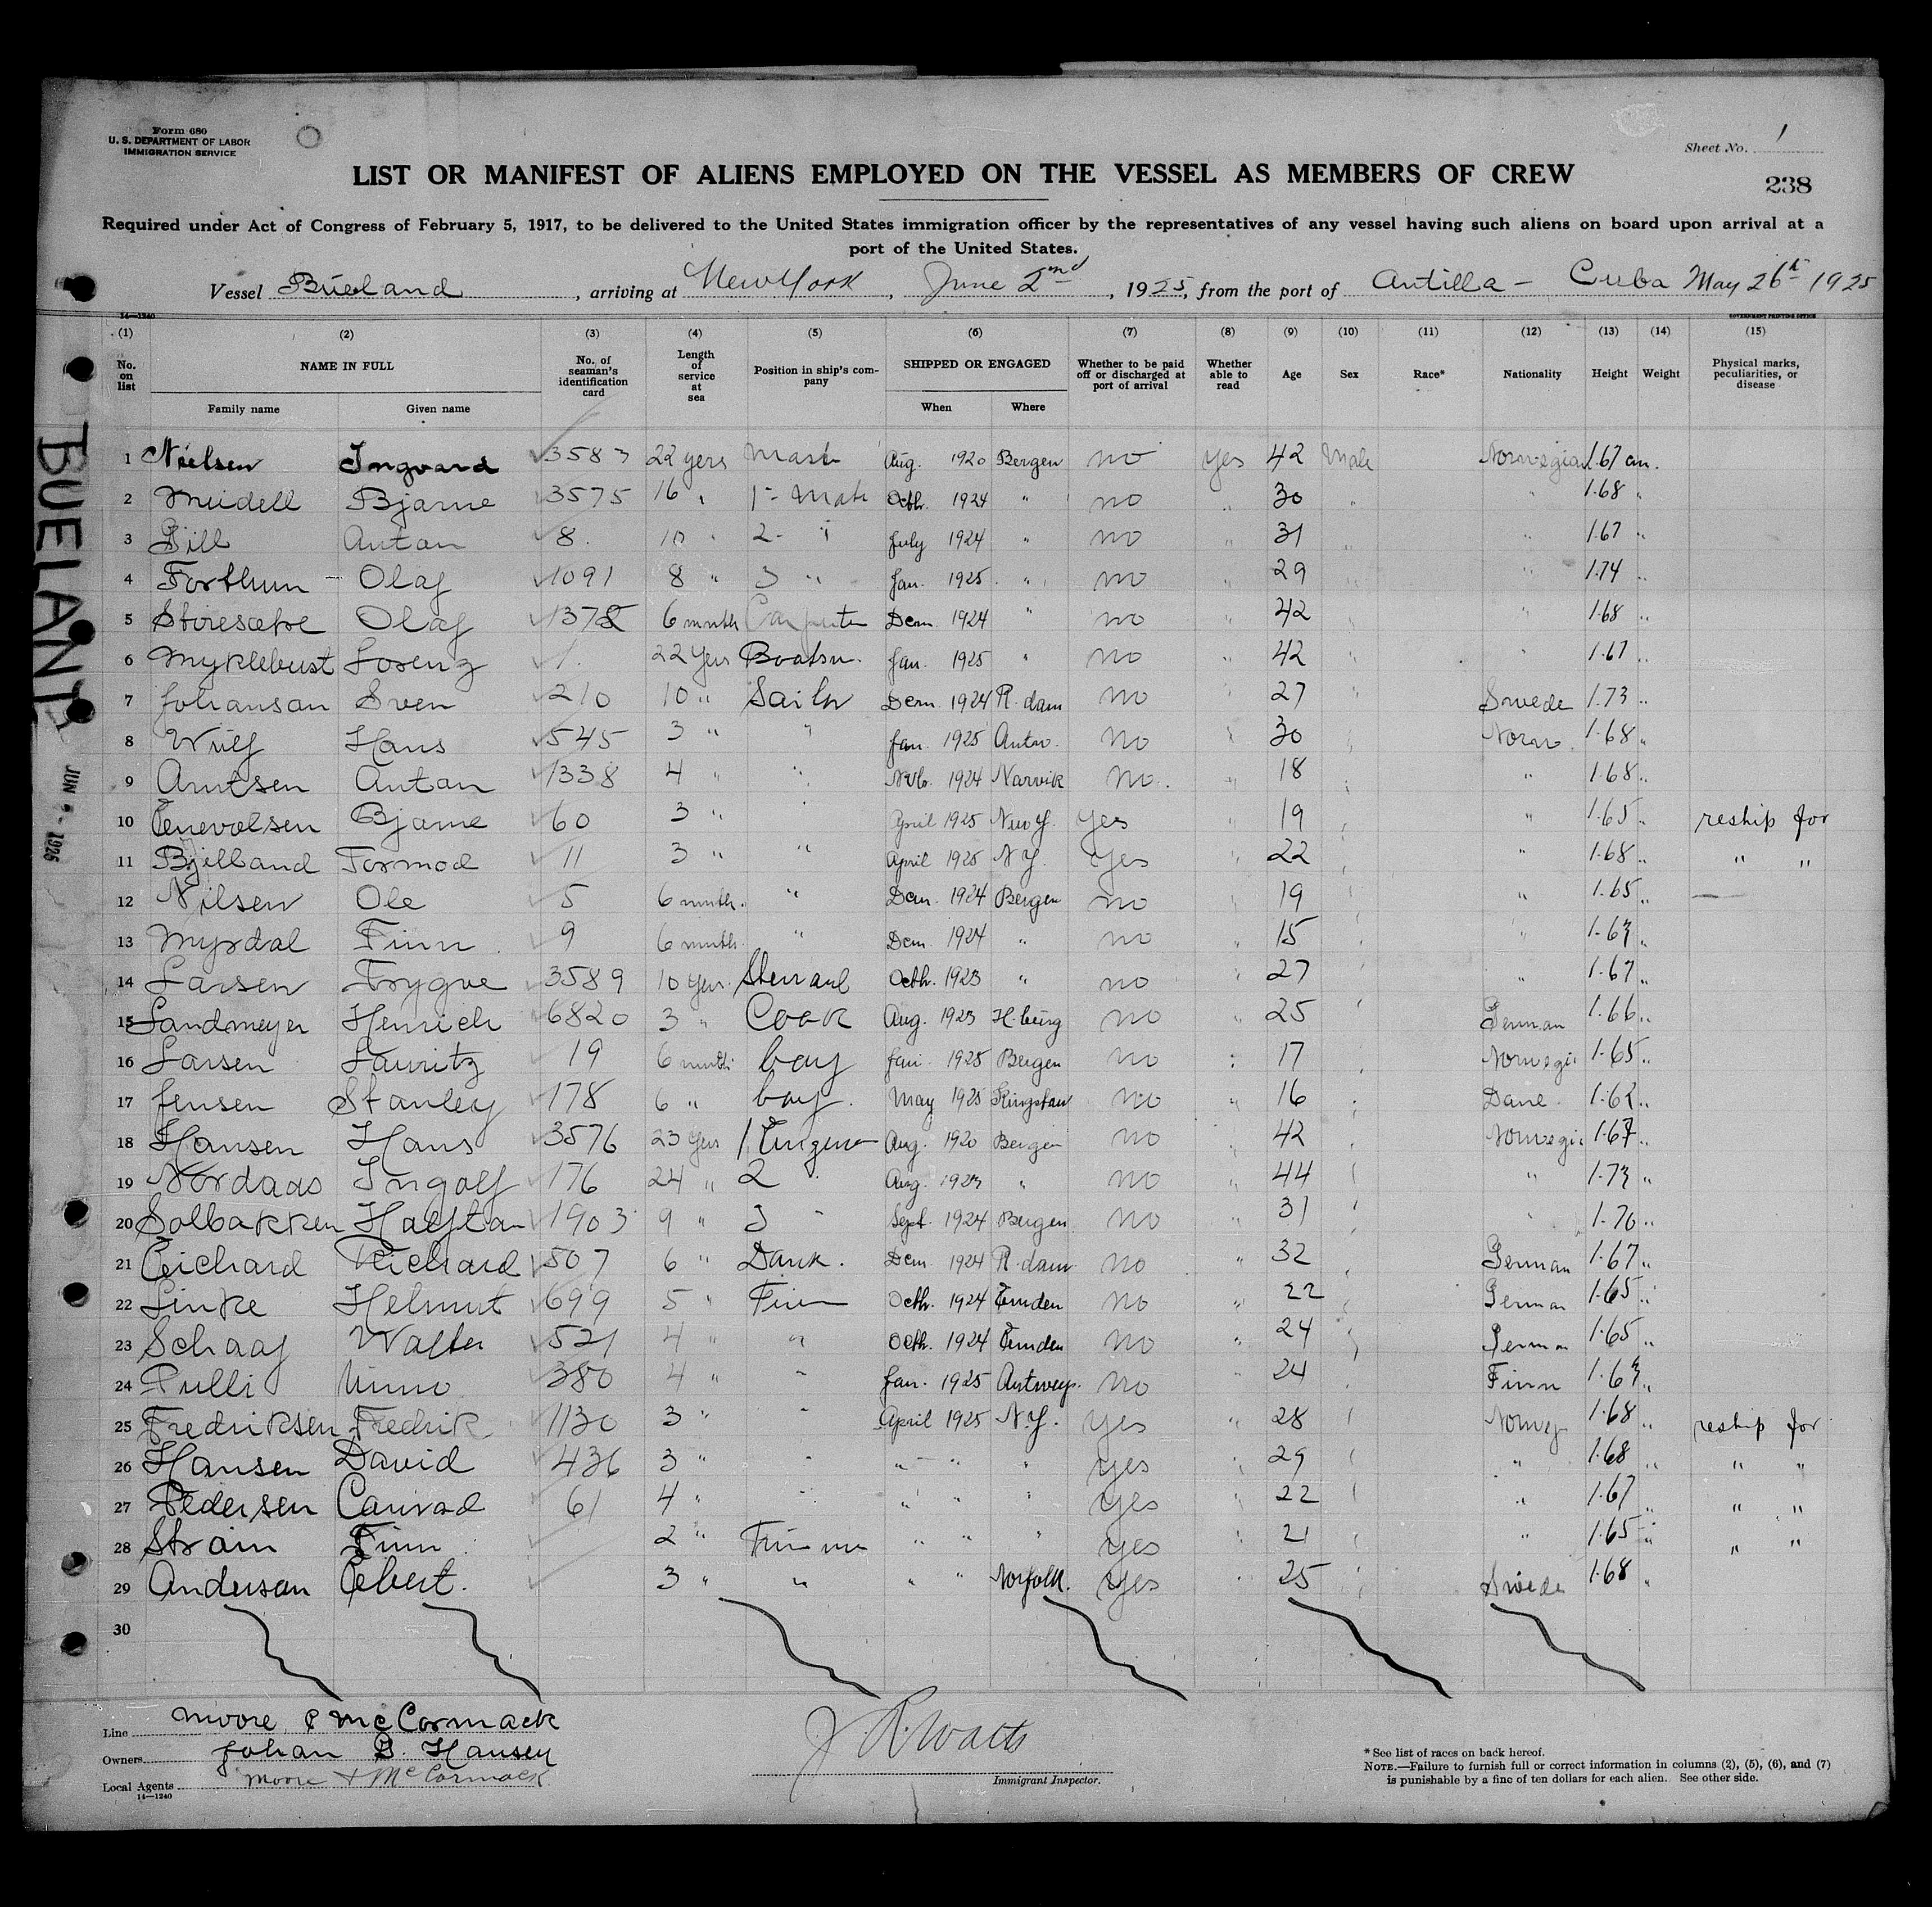 Form 680
U. S. DEPARTMENT OF LABOR
IMMIGRATION SERVICE
Sheet No. 1
LIST OR MANIFEST OF ALIENS EMPLOYED ON THE VESSEL AS MEMBERS OF CREW
238
Required under Act of Congress of February 5, 1917, to be delivered to the United States immigration officer by the representatives of any vessel having such aliens on board upon arrival at a
port of the United States.
Vessel Büeland, arriving at New York, June 2nd, 1925, from the port of Antilla - Cuba May 26th 1925
14—1240 GOVERNMENT PRINTING OFFICE
(1) (2) (3) (4) (5) (6) (7) (8) (9) (10) (11) (12) (13) (14) (15)
No. on list NAME IN FULL Family name Given name No. of seaman's identification card Length of service at sea Position in ship's company SHIPPED OR ENGAGED When Where Whether to be paid off or discharged at port of arrival Whether able to read Age Sex Race* Nationality Height Weight Physical marks, peculiarities, or disease
1 Nielsen Ingvard 3583 22 yers Mast Aug. 1920 Bergen no yes 42 Male Norwegian 1.67 cm.
2 Bjarne 3575 16 " 1- Mate Octb. 1924 " no " 30 " " 1.68 "
3 Gill Antan 8. 10 " 2- " July 1924 " no " 31 " " 1.67 "
4 Forthun - Olaf 1091 8 " 3 " Jan. 1925 " no " 29 " " 1.74 "
5 Olaf 6 munth Carpenter Decm. 1924 " no " 42 " " 1.68 "
6 Myklebust Lorenz 1. 22 Yers Boatsn. Jan. 1925 " no " 42 " " 1.67 "
7 Johansan Sven 210 10 " Sailr Decm. 1924 R.dam no " 27 " Swede 1.73 "
8 Wülf Hans 545 3 " " Jan. 1925 Antw. no " 30 " Norw. 1.68 "
9 Arntsen Antan 1338 4 " " Nvb. 1924 Narvik no. " 18 " " 1.68 "
10 Enevolsen Bjarne 60 3 " " April 1925 New Y. yes 19 " " 1.65 " reship for
11 Bjelland Tormod 11 3 " " April 1925 N.Y. yes " 22 " " 1.68 " " "
12 Nilsen Ole 5 6 munth. " Decm. 1924 Bergen no " 19 " " 1.65 " —
13 Myrdal Finn 9 6 munth. " Decm. 1924 " no " 15 " " "
14 Larsen Trygve 3589 10 yers. Steward Octb. 1923 " no " 27 " " 1.67 "
15 Sandmeyer Henrich 6820 3 " Cook Aug. 1923 H.burg no " 25 " German 1.66 "
16 Larsen Lauritz 19 6 munth. boy Jan. 1925 Bergen no " 17 " Norwegi 1.65 "
17 Jensen Stanley 178 6 " boy. May 1925 Kingstan no " 16 " Dane 1.62 "
18 Hansen Hans 3576 23 Yers 1. Enginer Aug. 1920 Bergen no " 42 " Norwegi 1.67 "
19 Nordaas Ingolf 176 24 " 2 " Aug. 1923 " no " 44 " " 1.73 "
20 Solbakken Halftan 1903 9 " 3 " Sept. 1924 Bergen no " 31 " " 1.70 "
21 Eichard Richard 507 6 " Dank. Decm. 1924 R.dam no " 32 " German 1.67 "
22 Linke Helmut 699 5 " Firem Octb. 1924 Emden no " 22 " German 1.65 "
23 Schaaf Walter 521 4 " " Octb. 1924 Emden no " 24 " German 1.65 "
24 Pulli 380 4 " " Jan. 1925 Antwep. no " 24 " Finn 1.63 "
25 Fredriksen Fredrik. 1130 3 " " April 1925 N.Y. yes " 28 " Norweg 1.68 " reship for
26 Hansen David 436 3 " " " " " yes " 29 " " 1.68 " " "
27 Pedersen Canrad 61 4 " " " " " yes " 22 " " 1.67 " " "
28 Strøm Finn 2 " Firemn " " " yes " 21 " " 1.65 " " "
29 Andersan Ebert. 3 " " " " Norfolk. yes " 25 " Swede 1.68 "
30
BUELAND
JUN 2- 1925
Line Moore & McCormack
Owners Johan G. Hansen
Local Agents Moore & McCormack
14—1240
J R Watts
Immigrant Inspector.
* See list of races on back hereof.
NOTE.—Failure to furnish full or correct information in columns (2), (5), (6), and (7)
is punishable by a fine of ten dollars for each alien. See other side.